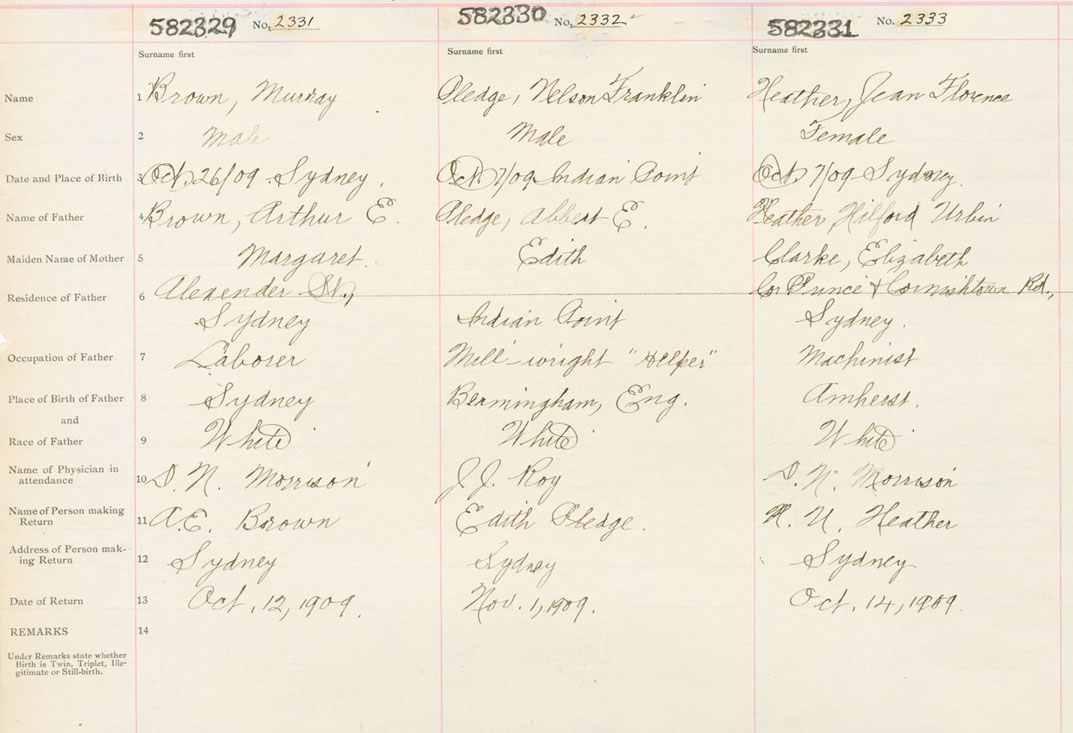 582329 No. 2331 582330 No. 2332 582331 No. 2333
Surname first Surname first Surname first
Name 1 Brown, Murray Pledge, Nelson Franklin Heather, Jean Florence
Sex 2 Male Male Female
Date and Place of Birth 3 Oct. 26/09 - Sydney. Oct 7/09 Indian Point Oct. 7/09 - Sydney.
Name of Father 4 Brown, Arthur E. Pledge, Albert E. Heather, Hilford Urbin
Maiden Name of Mother 5 Margaret. Edith Clarke, Elizabeth
Residence of Father 6 Alexender St., Cor Prince & Cornishtown Rd.,
Sydney Indian Point Sydney.
Occupation of Father 7 Laborer Mill-wright "Helper" Machinist
Place of Birth of Father 8 Sydney Bermingham, Eng. Amherst.
and
Race of Father 9 White White White
Name of Physician in
attendance 10 D. N. Morrison J. J. Roy D. N. Morrison
Name of Person making
Return 11 A.E. Brown Edith Pledge. H. U. Heather
Address of Person mak-
ing Return 12 Sydney Sydney Sydney
Date of Return 13 Oct. 12, 1909. Nov. 1, 1909. Oct. 14, 1909.
REMARKS 14
Under Remarks state whether
Birth is Twin, Triplet, Ille-
gitimate or Still-birth.